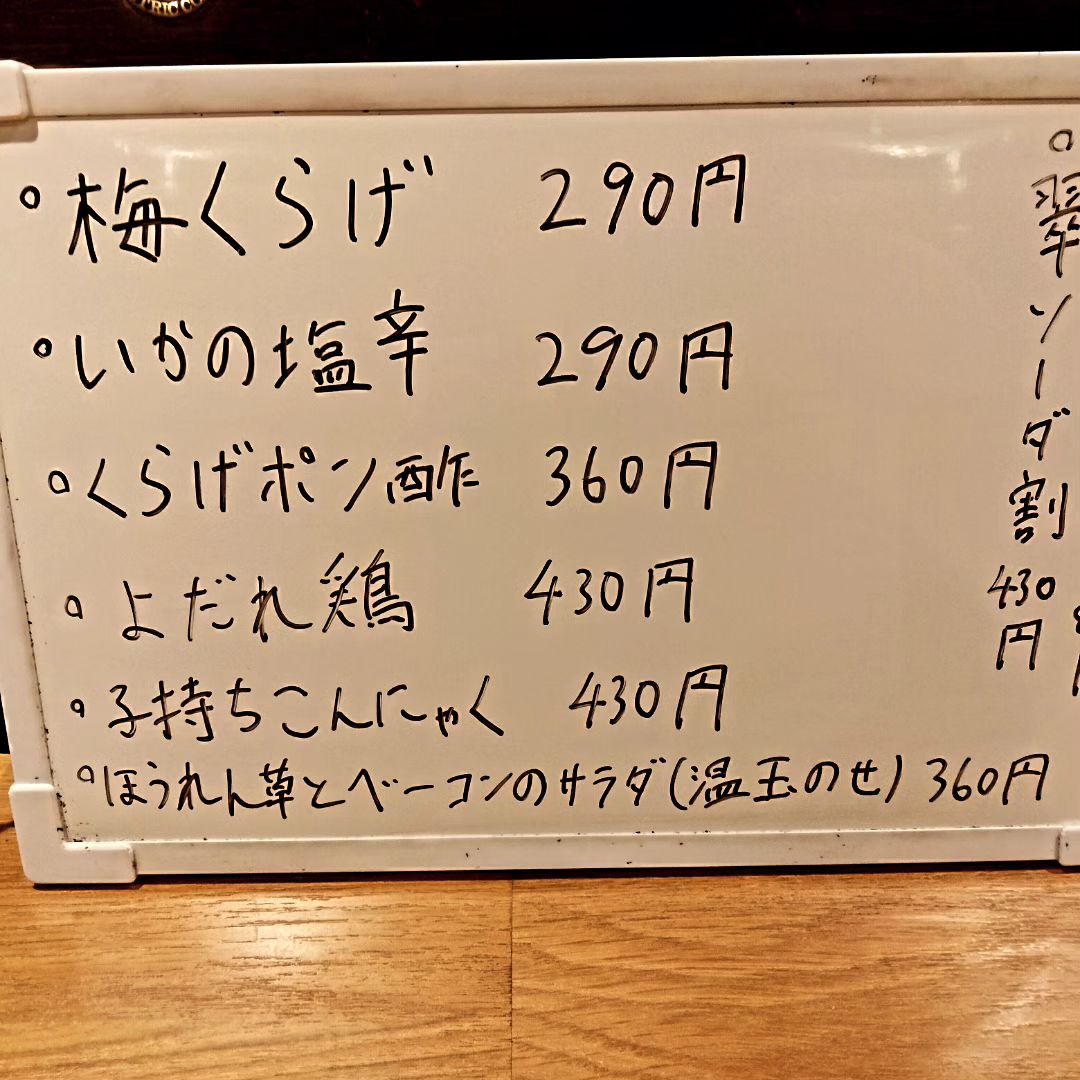 TRIC CO
○梅くらげ 290円
○いかの塩辛 290円
○くらげポン酢 360円
○よだれ鶏 430円
○子持ちこんにゃく 430円
○ほうれん草とベーコンのサラダ(温玉のせ) 360円
○翠ソーダ割 430円